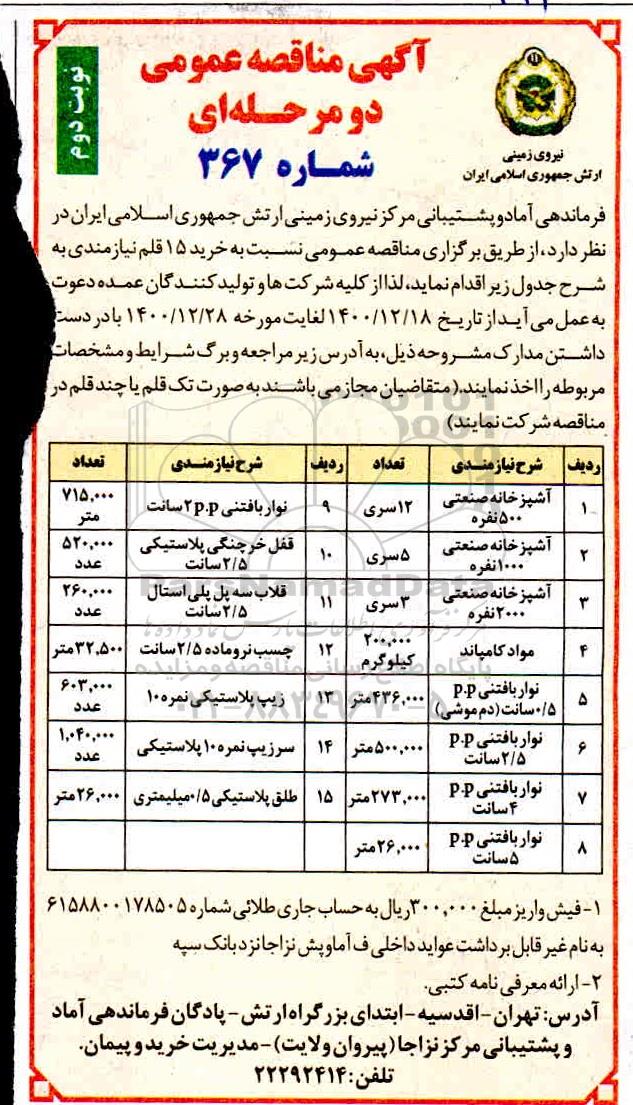 آگهی مناقصه عمومی
دو مرحله‌ای
شماره ۳۶۷
نوبت دوم
نیروی زمینی
ارتش جمهوری اسلامی ایران
فرماندهی آماد و پشتیبانی مرکز نیروی زمینی ارتش جمهوری اسلامی ایران در
نظر دارد، از طریق برگزاری مناقصه عمومی نسبت به خرید ۱۵ قلم نیازمندی به
شرح جدول زیر اقدام نماید، لذا از کلیه شرکت‌ها و تولیدکنندگان عمده دعوت
به عمل می آید از تاریخ ۱۴۰۰/۱۲/۱۸ لغایت مورخه ۱۴۰۰/۱۲/۲۸ با در دست
داشتن مدارک مشروحه ذیل، به آدرس زیر مراجعه و برگ شرایط و مشخصات
مربوطه را اخذ نمایند. (متقاضیان مجاز می باشند به صورت تک قلم یا چند قلم در
مناقصه شرکت نمایند)
ردیف شرح نیازمندی تعداد ردیف شرح نیازمندی تعداد
۱ آشپزخانه صنعتی ۵۰۰ نفره ۱۲ سری ۹ نوار بافتنی p.p ۲ سانت ۷۱۵,۰۰۰ متر
۲ آشپزخانه صنعتی ۱۰۰۰ نفره ۵ سری ۱۰ قفل خرچنگی پلاستیکی ۲/۵ سانت ۵۲۰,۰۰۰ عدد
۳ آشپزخانه صنعتی ۲۰۰۰ نفره ۳ سری ۱۱ قلاب سه پل پلی استال ۲/۵ سانت ۲۶۰,۰۰۰ عدد
۴ مواد کامپاند ۲۰۰,۰۰۰ کیلوگرم ۱۲ چسب نر و ماده ۲/۵ سانت ۳۲,۵۰۰ متر
۵ نوار بافتنی p.p ۰/۵ سانت (دم موشی) ۴۳۶,۰۰۰ متر ۱۳ زیپ پلاستیکی نمره ۱۰ ۶۰۳,۰۰۰ عدد
۶ نوار بافتنی p.p ۲/۵ سانت ۵۰۰,۰۰۰ متر ۱۴ سرزیپ نمره ۱۰ پلاستیکی ۱,۰۴۰,۰۰۰ عدد
۷ نوار بافتنی p.p ۴ سانت ۲۷۳,۰۰۰ متر ۱۵ طلق پلاستیکی ۰/۵ میلیمتری ۲۶,۰۰۰ متر
۸ نوار بافتنی p.p ۵ سانت ۲۶,۰۰۰ متر
ParsNamadData
پایگاه اطلاع رسانی مناقصه و مزایده
۰۲۱-۸۸۳۴۹۶۷۰-۵
۱- فیش واریز مبلغ ۳۰۰,۰۰۰ ریال به حساب جاری طلائی شماره ۶۱۵۸۸۰۰۱۷۸۵۰۵
به نام غیر قابل برداشت عواید داخلی ف آماوپش نزاجا نزد بانک سپه
۲- ارائه معرفی نامه کتبی.
آدرس: تهران - اقدسیه - ابتدای بزرگراه ارتش - پادگان فرماندهی آماد
و پشتیبانی مرکز نزاجا (پیروان ولایت) - مدیریت خرید و پیمان.
تلفن: ۲۲۲۹۲۴۱۴